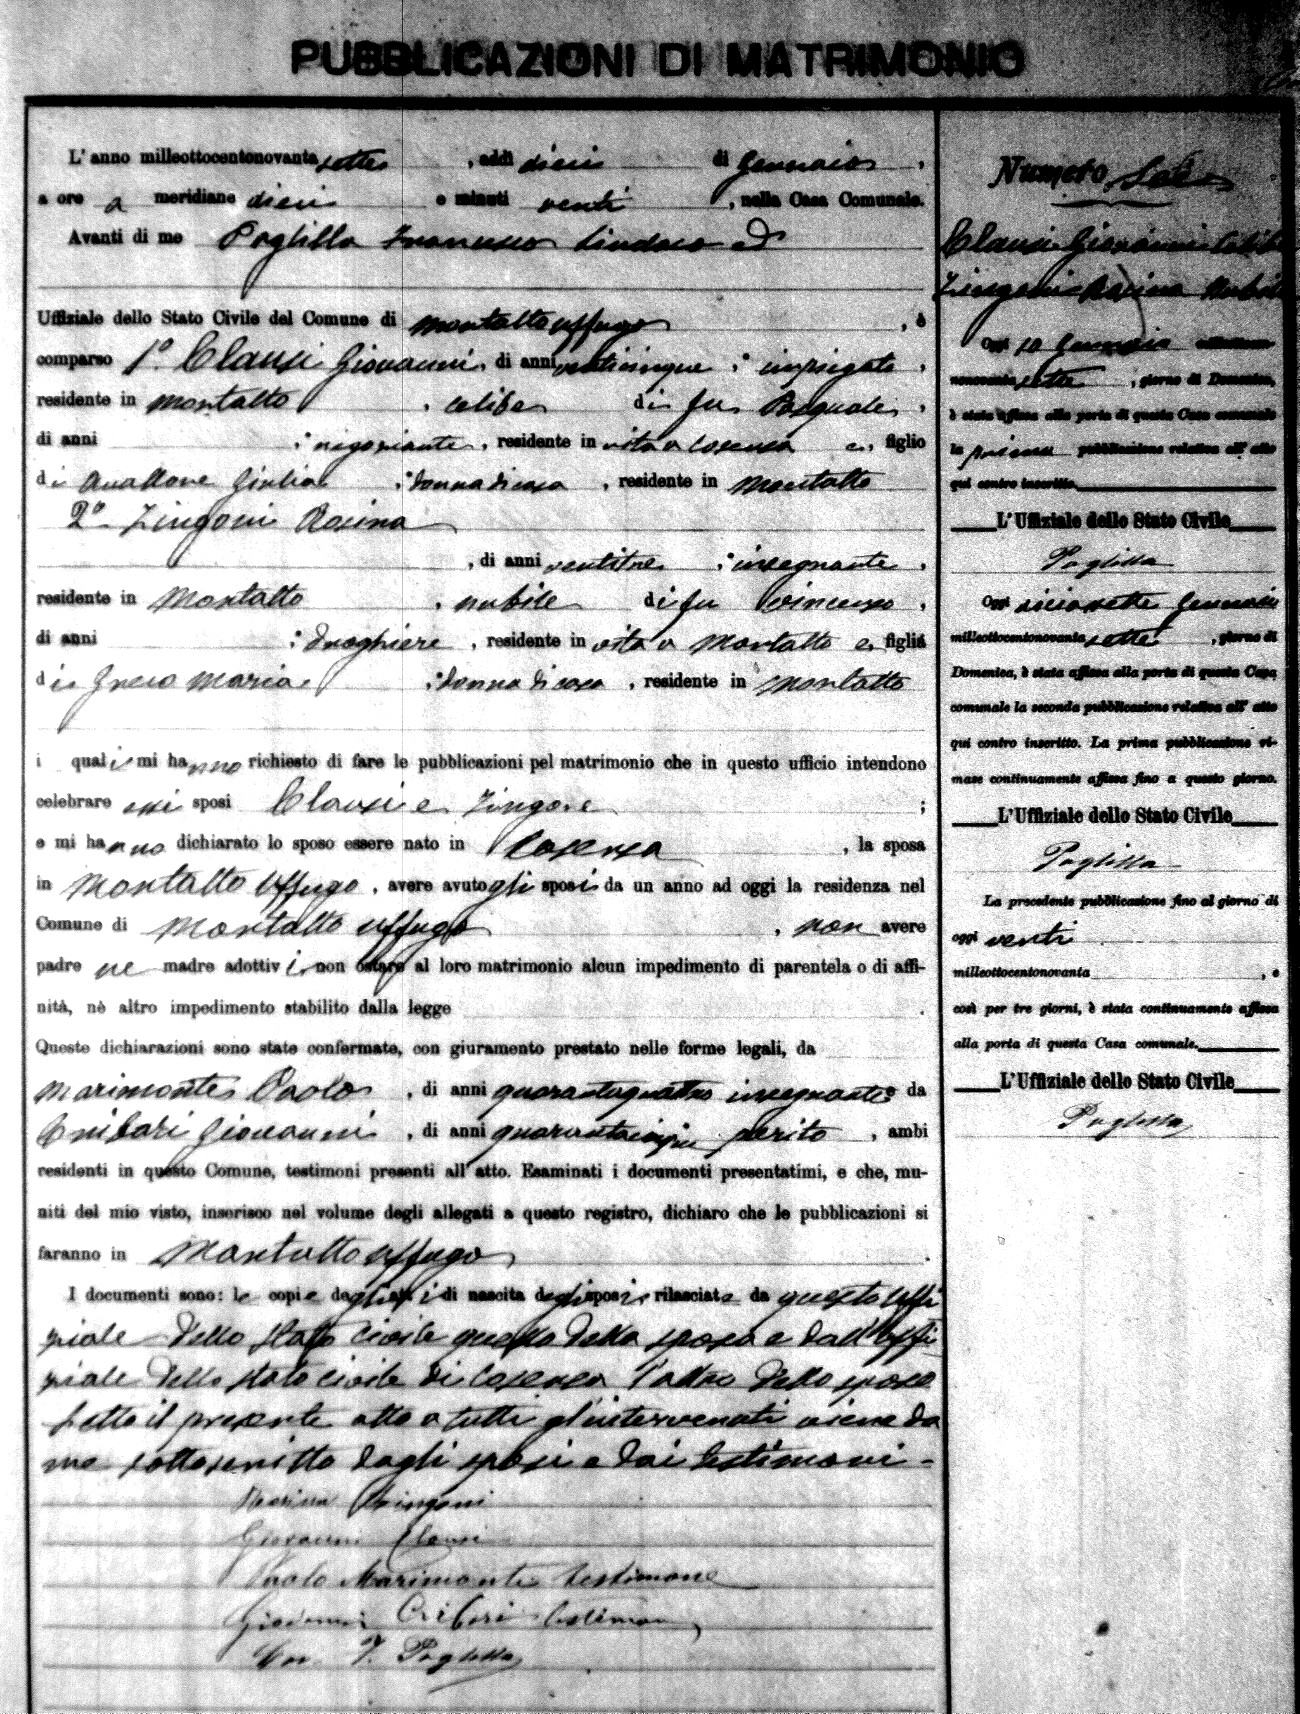 PUBBLICAZIONI DI MATRIMONIO
L'anno milleottocentonovanta sette, addì dieci di Gennaio,
a ore a meridiane dieci e minuti venti, nella Casa Comunale.
Avanti di me Paglilla Francesco Sindaco ed
Uffiziale dello Stato Civile del Comune di Montalto Uffugo, è
comparso 1° Clausi Giovanni, di anni venticinque, impiegato,
residente in Montalto, celibe di fu Pasquale,
di anni negoziante, residente in vita a Cosenza e, figlio
di Avallone Giulia, donna di casa, residente in Montalto
2° Zingoni Rosina
, di anni ventitre, insegnante,
residente in Montalto, nubile di fu Vincenzo,
di anni droghiere, residente in vita a Montalto e, figlia
di Greco Maria, donna di casa, residente in Montalto
i quali mi hanno richiesto di fare le pubblicazioni pel matrimonio che in questo ufficio intendono
celebrare essi sposi Clausi e Zingone;
e mi hanno dichiarato lo sposo essere nato in Cosenza, la sposa
in Montalto Uffugo, avere avuto gli sposi da un anno ad oggi la residenza nel
Comune di Montalto Uffugo, non avere
padre ne madre adottivi, non ostare al loro matrimonio alcun impedimento di parentela o di affi-
nità, nè altro impedimento stabilito dalla legge.
Queste dichiarazioni sono state confermate, con giuramento prestato nelle forme legali, da
Marimonte Paolo, di anni quarantaquattro insegnante e da
Cribari Giovanni, di anni quarantacinque perito, ambi
residenti in questo Comune, testimoni presenti all'atto. Esaminati i documenti presentatimi, e che, mu-
niti del mio visto, inserisco nel volume degli allegati a questo registro, dichiaro che le pubblicazioni si
faranno in Montalto Uffugo.
I documenti sono: le copie degli atti di nascita degli sposi rilasciate da questo Uffi
ziale dello stato civile quella della sposa e dall'Uffi
ziale dello stato civile di Cosenza l'altro dello sposo
Letto il presente atto a tutti gl'intervenuti viene da
me sottoscritto dagli sposi e dai testimoni -
Rosina Zingoni
Giovanni Clausi
Paolo Marimonte testimone
Giovanni Cribari testimone
F. Paglilla
Numero Sette
Clausi Giovanni celibe
Zingoni Rosina nubile
Oggi 10 Gennaio milleottocento-
novanta sette, giorno di Domenica,
è stata affissa alla porta di questa Casa comunale
la prima pubblicazione relativa all'atto
qui contro inscritto.
L'Uffiziale dello Stato Civile
Paglilla
Oggi diciasette Gennaio
milleottocentonovanta sette, giorno di
Domenica, è stata affissa alla porta di questa Casa
comunale la seconda pubblicazione relativa all'atto
qui contro inscritto. La prima pubblicazione ri-
mase continuamente affissa fino a questo giorno.
L'Uffiziale dello Stato Civile
Paglilla
La precedente pubblicazione fino al giorno di
oggi venti
milleottocentonovanta, e
così per tre giorni, è stata continuamente affissa
alla porta di questa Casa comunale.
L'Uffiziale dello Stato Civile
Paglilla